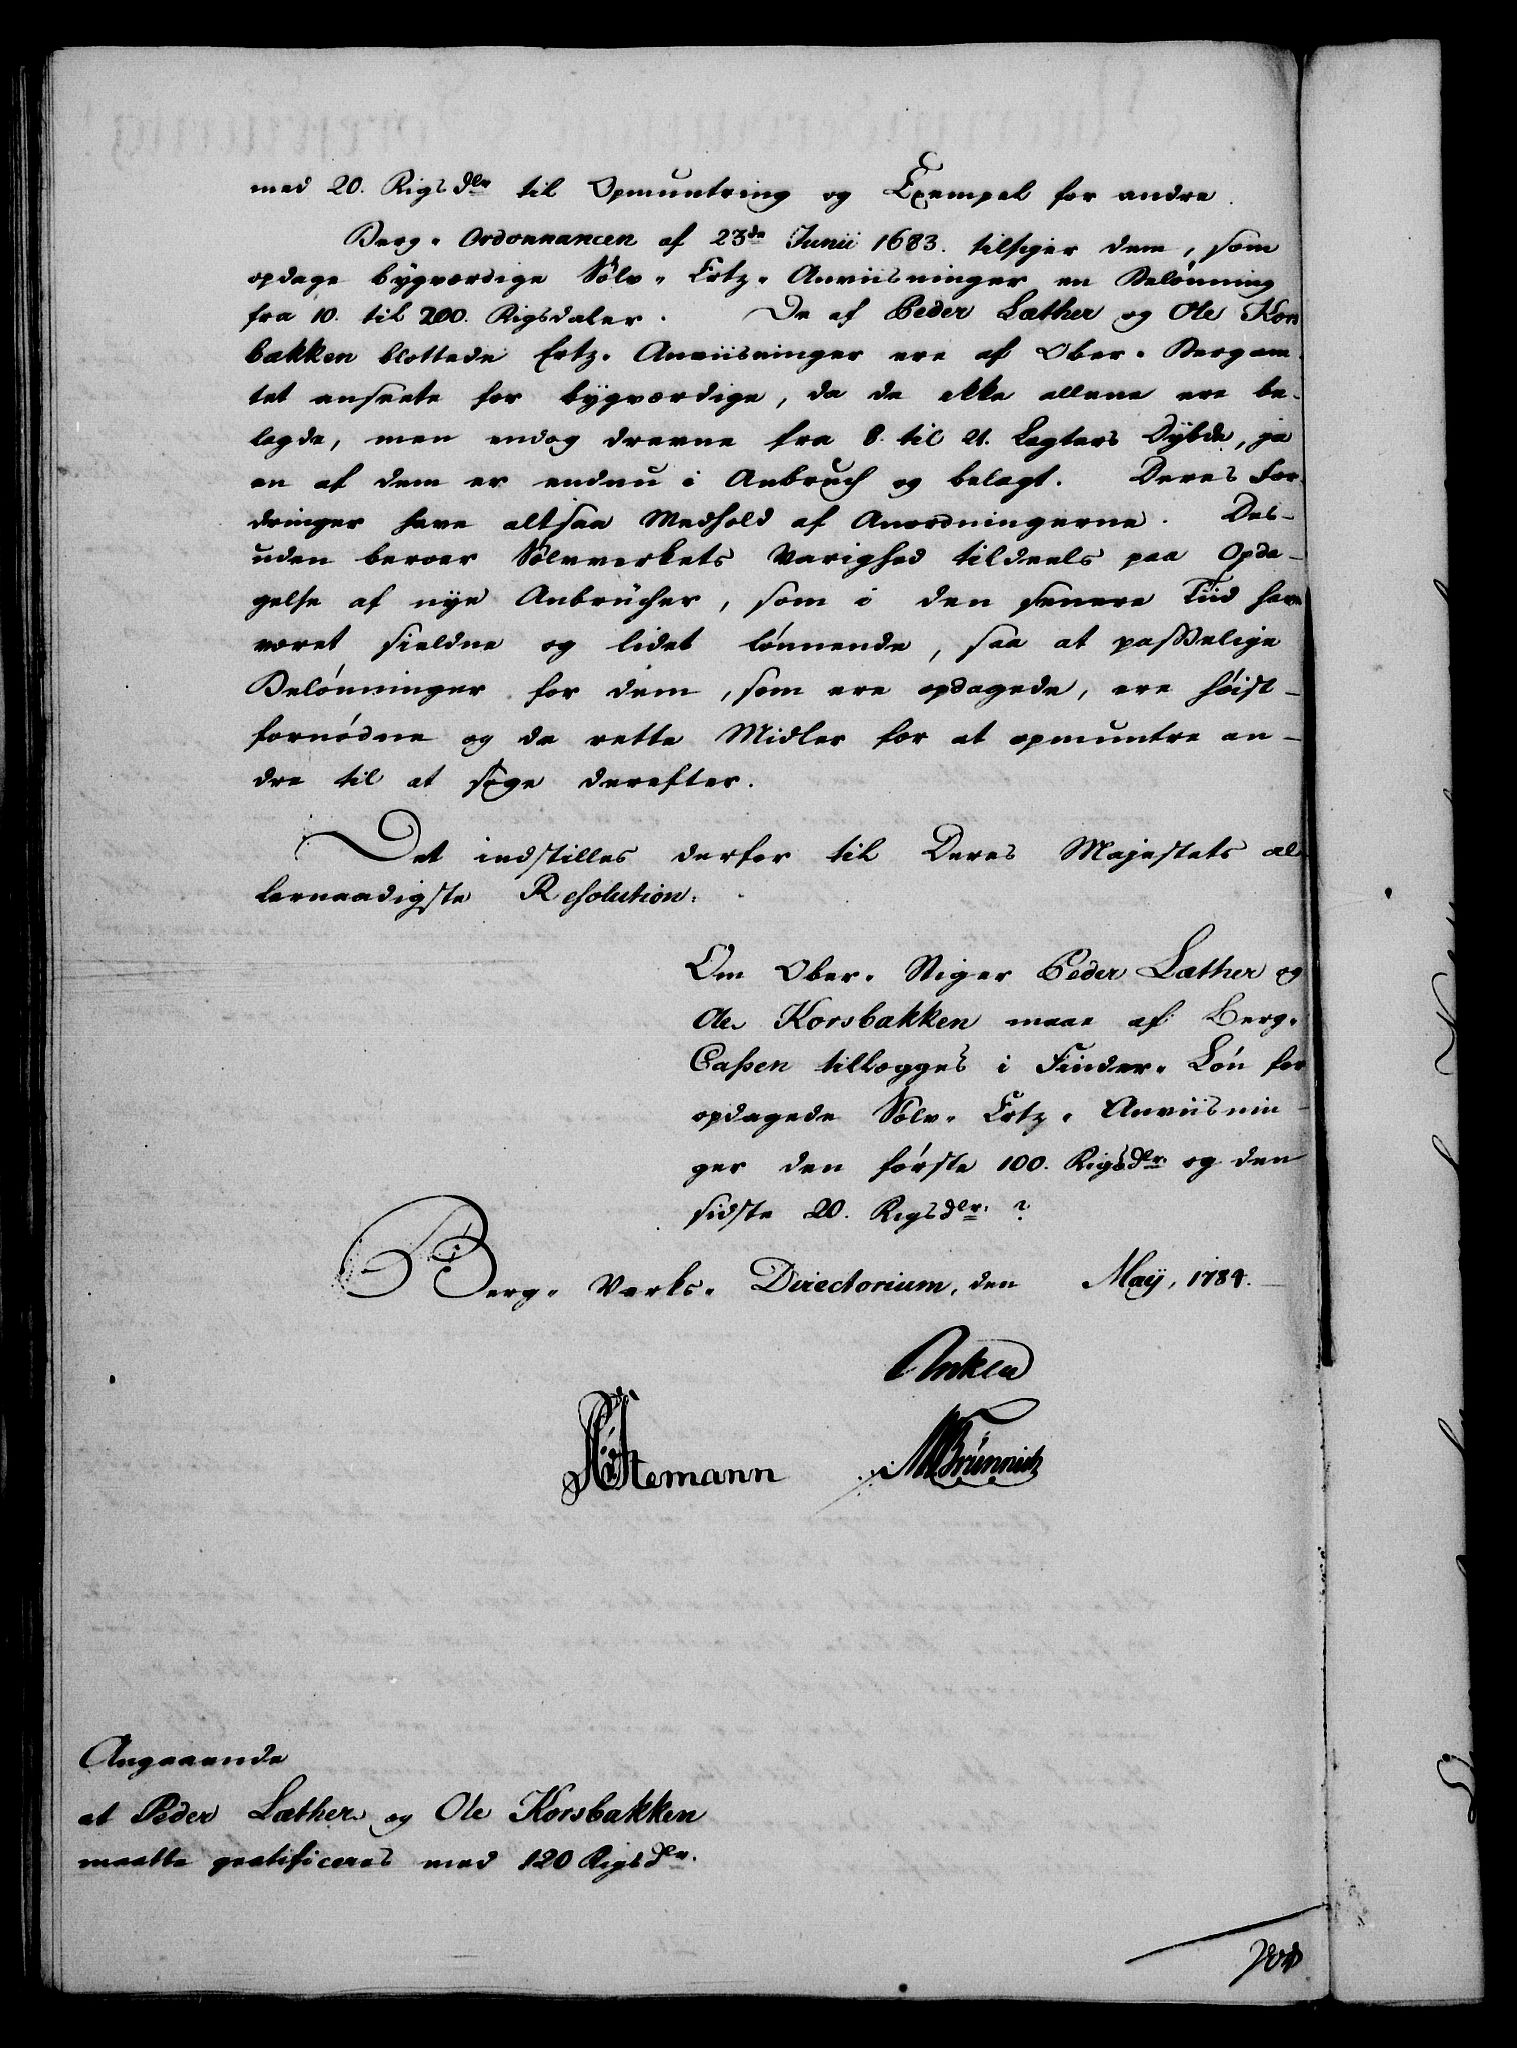 med 20. Rigsdlr til Opmuntring og Exempel for andre.
Berg-Ordonnancen af 23de Junii 1683. tilsiger dem, som
opdage bÿgværdige Sølv-Ertz-Anviisninger en Belønning
fra 10. til 200. Rigsdaler. De af Peder Læther og Ole Kors
bakken blottede Ertz-Anviisninger ere af Ober-Bergam-
tet ansete for bÿgværdige, da de ikke allene ere be-
lagde, men endog drevne fra 8. til 21. Lagters Dÿbde, ja
en af dem er endnu i Anbruch og belagt. Deres For-
dringer have altsaa Medhold af Anordningerne. Des-
uden beroer Sølvverkets Varighed tildeels paa Opda-
gelse af nye Anbrücher, som i den senere Tiid have
været sieldne og lidet lønnende, saa at passelige
Belønninger for dem, som ere opdagede, ere høist-
fornødne og de rette Midler for at opmuntre an-
dre til at søge derefter.
Det indstilles derfor til Deres Majestets al-
lernaadigste Resolution:
Om Ober-Stiger Peder Læther og
Ole Korsbakken maae af Berg-
Cassen tillægges i Finder-Løn for
opdagede Sølv-Ertz-Anviisnin-
ger den første 100. Rigsdlr og den
sidste 20. Rigsdlr. ?
Berg-Verks-Directorium, den Maÿ, 1784.
Anker
Stemann MBrünnich
Angaaende
at Peder Læther og Ole Korsbakken
maatte gratificeres med 120 Rigsdlr.